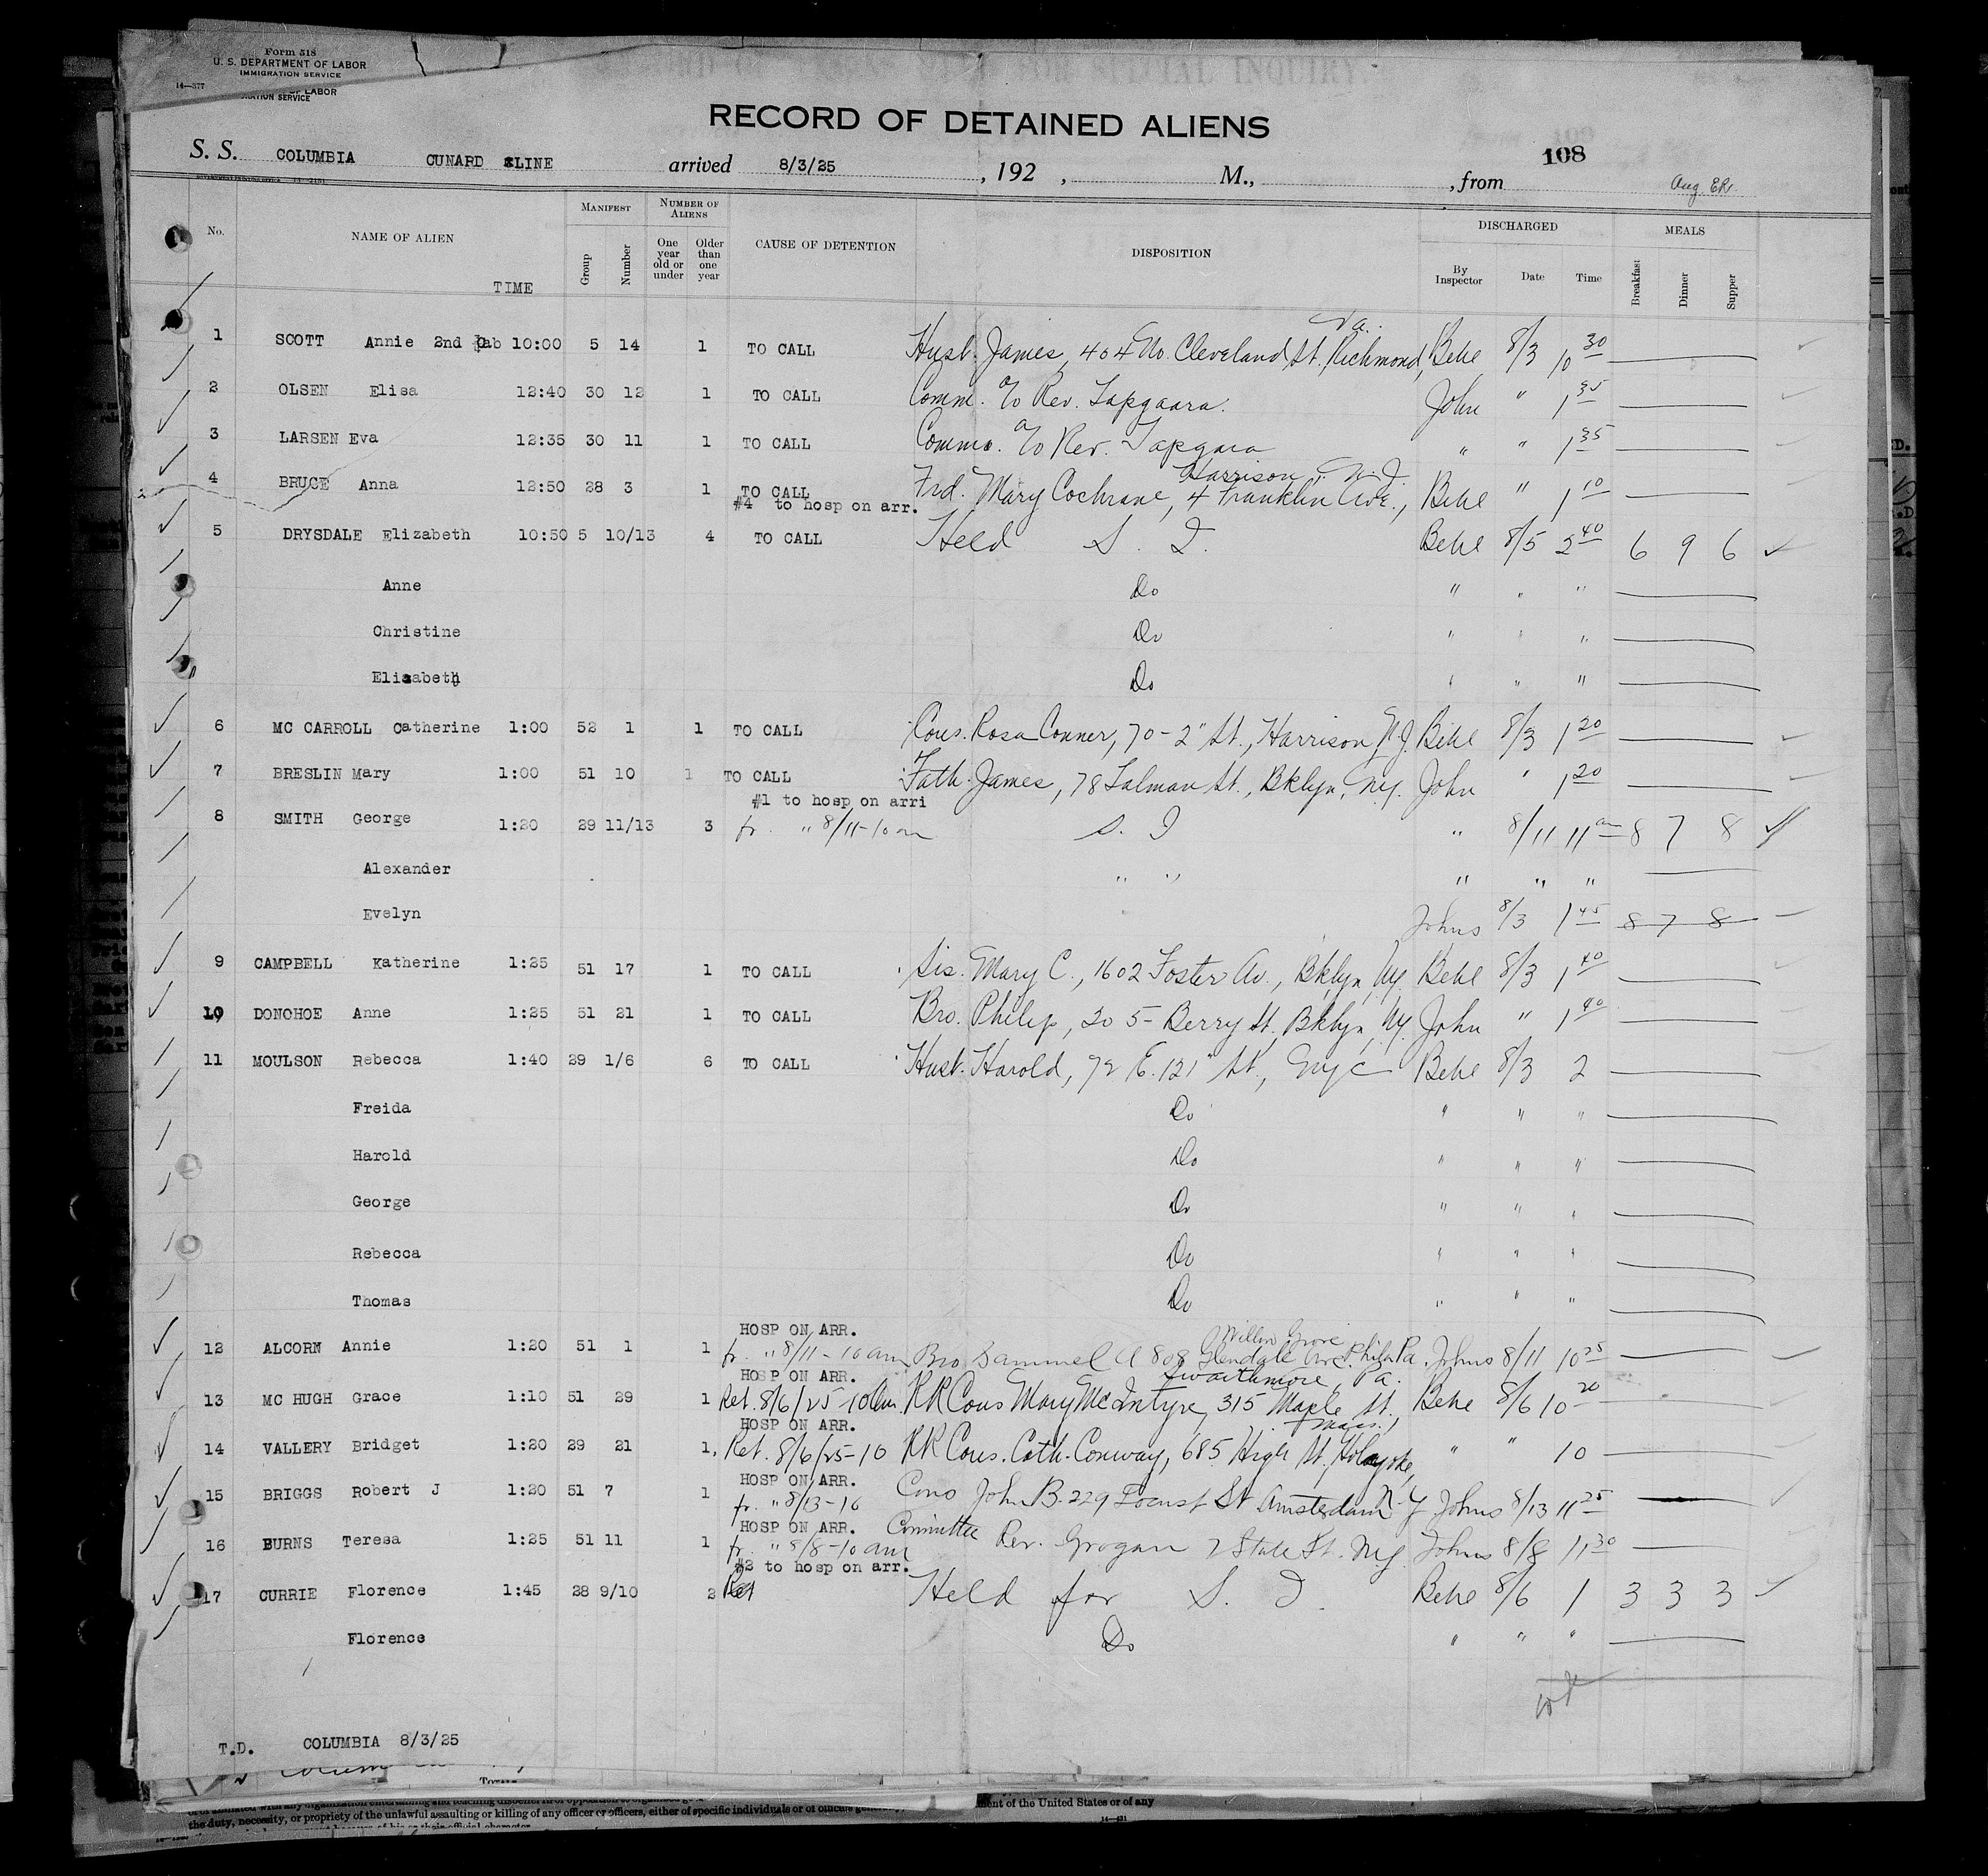 Form 518
U. S. DEPARTMENT OF LABOR
IMMIGRATION SERVICE
14—377
OF LABOR
RATION SERVICE
SPECIAL INQUIRY
RECORD OF DETAINED ALIENS
108
S. S. COLUMBIA CUNARD LINE arrived 8/3/25 , 192 , M., , from
Aug.
No. NAME OF ALIEN TIME MANIFEST Group Number NUMBER OF ALIENS One year old or under Older than one year CAUSE OF DETENTION DISPOSITION DISCHARGED By Inspector Date Time MEALS Breakfast Dinner Supper
Va.
1 SCOTT Annie 2nd Cab 10:00 5 14 1 TO CALL Husb. James, 404 No. Cleveland St. Richmond, Behe 8/3 10 30
2 OLSEN Elisa 12:40 30 12 1 TO CALL Comm. c/o Rev. Tapgaara. John " 1 35
3 LARSEN Eva 12:35 30 11 1 TO CALL Comm. c/o Rev. Tapgaara " " 1 35
Harrison, N.J.
4 BRUCE Anna 12:50 28 3 1 TO CALL Frd. Mary Cochrane, 4 Franklin Ave., Behe " 1 10
#4 to hosp on arr.
5 DRYSDALE Elizabeth 10:50 5 10/13 4 TO CALL Held S. I. Behe 8/5 2 40 6 9 6
Anne Do " " "
Christine Do " " "
Elizabeth Do " " "
6 MC CARROLL Catherine 1:00 52 1 1 TO CALL Cous. Rosa Conner, 70-2" St., Harrison, N.J. Behe 8/3 1 20
7 BRESLIN Mary 1:00 51 10 1 TO CALL Fath. James, 78 Talman St., Bklyn, N.Y. John " 1 20
#1 to hosp on arri
8 SMITH George 1:20 29 11/13 3 fr. " 8/11-10 am S. I " 8/11 11 am 8 7 8
Alexander " " " " "
Evelyn Johns 8/3 1 45 8 7 8
9 CAMPBELL Katherine 1:25 51 17 1 TO CALL Sis. Mary C., 1602 Foster Av., Bklyn, N.Y. Behe 8/3 1 40
10 DONOHOE Anne 1:25 51 21 1 TO CALL Bro. Philip, 205- Berry St. Bklyn, N.Y. John " 1 40
11 MOULSON Rebecca 1:40 29 1/6 6 TO CALL Husb. Harold, 72 E. 121" St., NYC Behe 8/3 2
Freida Do " " "
Harold Do " " "
George Do " " "
Rebecca Do " " "
Thomas Do " " "
HOSP ON ARR. Willow Grove
12 ALCORN Annie 1:20 51 1 1 fr. " 8/11-10 am Bro Sammel A 808 Glendale Ave. Phila Pa. Johns 8/11 10 25
HOSP ON ARR. Swarthmore, Pa.
13 MC HUGH Grace 1:10 51 29 1 Ret. 8/6/25-10am. RR Cous Mary McIntyre, 315 Maple St., Behe 8/6 10 20
HOSP ON ARR. Mass.,
14 VALLERY Bridget 1:20 29 21 1 Ret. 8/6/25-10 RR Cous. Cath. Conway, 685 High St., Holyoke, " " 10
HOSP ON ARR.
15 BRIGGS Robert J 1:20 51 7 1 fr. " 8/13-10 Cons John B. 229 Locust St Amsterdam N.Y Johns 8/13 11 25
HOSP ON ARR.
16 BURNS Teresa 1:25 51 11 1 fr. " 8/8-10 am Committee Rev. Grogan 7 State St. N.Y. Johns 8/8 11 30
#2 to hosp on arr.
17 CURRIE Florence 1:45 28 9/10 2 Ret Held for S. I. Behe 8/6 1 3 3 3
Florence Do " " "
T.D. COLUMBIA 8/3/25
TOTALS
the duty, necessity, or propriety of the unlawful assaulting or killing of any officer or officers, either of specific individuals or of officers
ment of the United States or of any
14—431